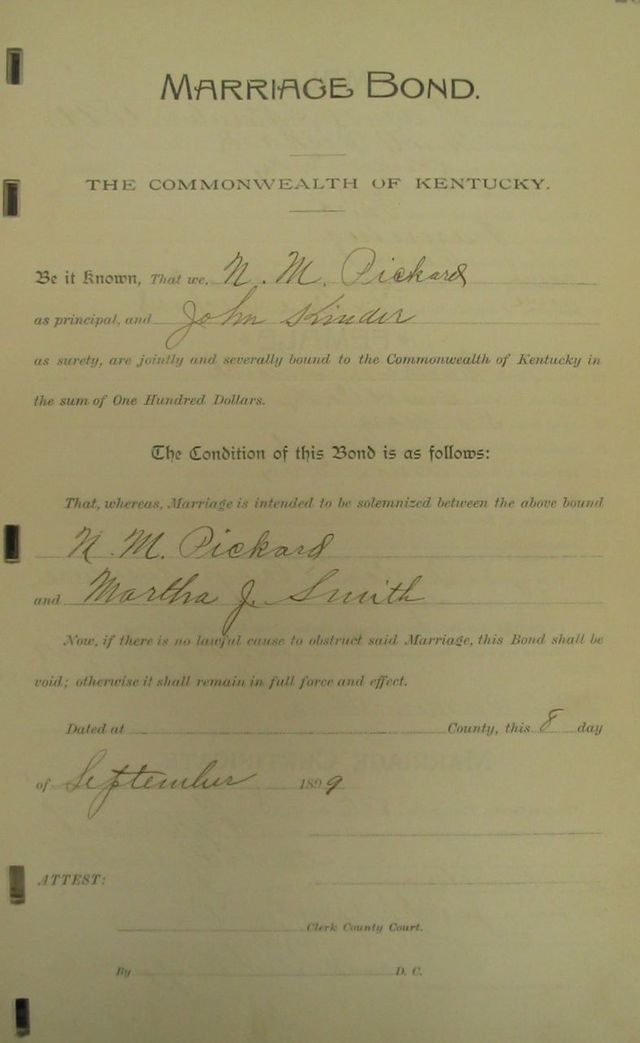 MARRIAGE BOND.
THE COMMONWEALTH OF KENTUCKY.
Be it Known, That we, N. M. Pickard
as principal, and John Kinder
as surety, are jointly and severally bound to the Commonwealth of Kentucky in
the sum of One Hundred Dollars.
The Condition of this Bond is as follows:
That, whereas, Marriage is intended to be solemnized between the above bound
N. M. Pickard
and Martha J. Smith
Now, if there is no lawful cause to obstruct said Marriage, this Bond shall be
void; otherwise it shall remain in full force and effect.
Dated at County, this 8 day
of September 1899
ATTEST:
Clerk County Court.
By D. C.